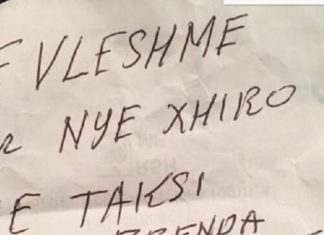 E VLESHME
NYE XHIRO
E TAKSI
BRENDA